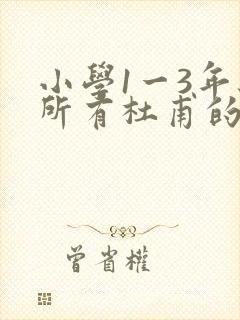 小學1一3年
所有杜甫的
曾省權